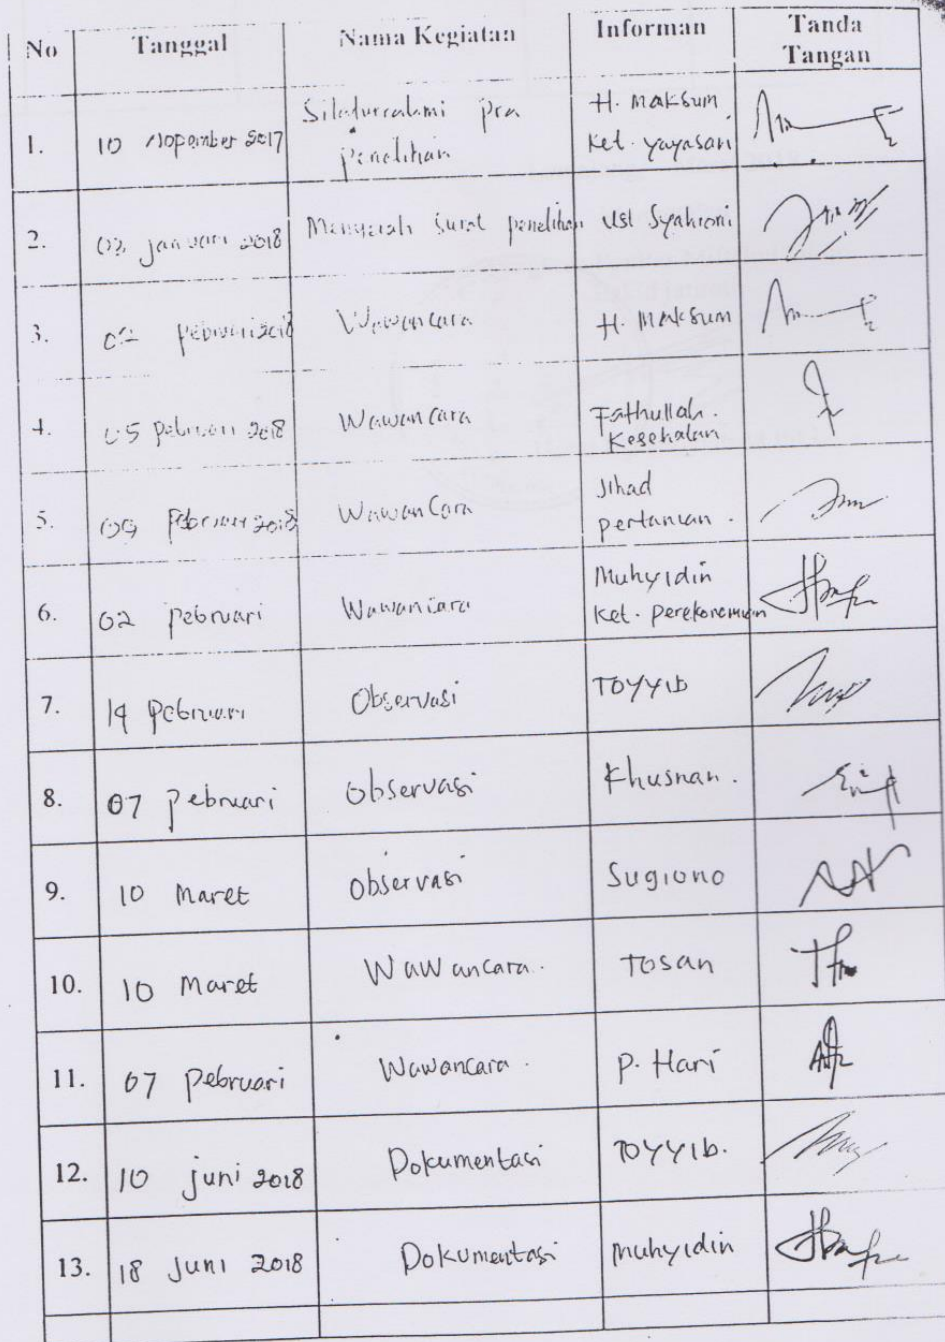 No Tanggal Nama Kegiatan Informan Tanda Tangan
1. 10 Nopember 2017 Silaturrahmi pra penelitian H. Maksum Ket. yayasan
2. januari 2018 Menyerah surat penelitian Ust Syahroni
3. 02 Pebruari 2018 Wawancara H. Maksum
4. 05 Pebruari 2018 Wawancara Fathullah. Kesehatan
5. Pebruari 2018 Wawancara Jihad pertanian.
6. 02 Pebruari Wawancara Muhyidin Ket. Perekonomian
7. 14 Pebruari Observasi TOYYIB
8. 07 Pebruari Observasi Khusnan.
9. 10 Maret Observasi Sugiono
10. 10 Maret Wawancara. TOSAN
11. 07 Pebruari Wawancara. P. Hari
12. 10 juni 2018 Dokumentasi TOYYIB.
13. 18 Juni 2018 Dokumentasi Muhyidin